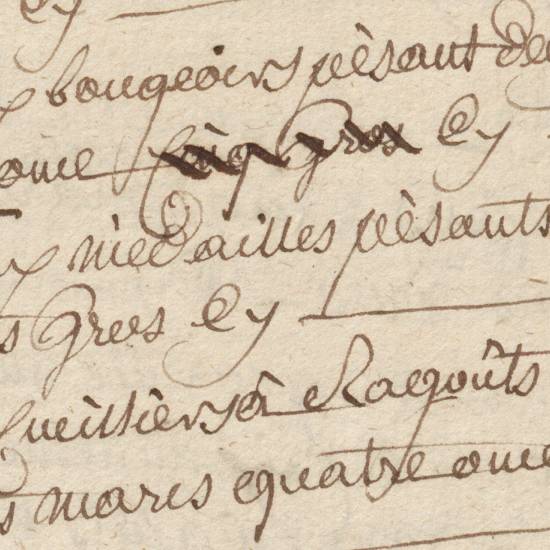 bougeoirs pèsant de
once cinq gros Cy
x mèdailles pèsants
s gros Cy
Cueilliers à Ragoûts
s marcs quatre once